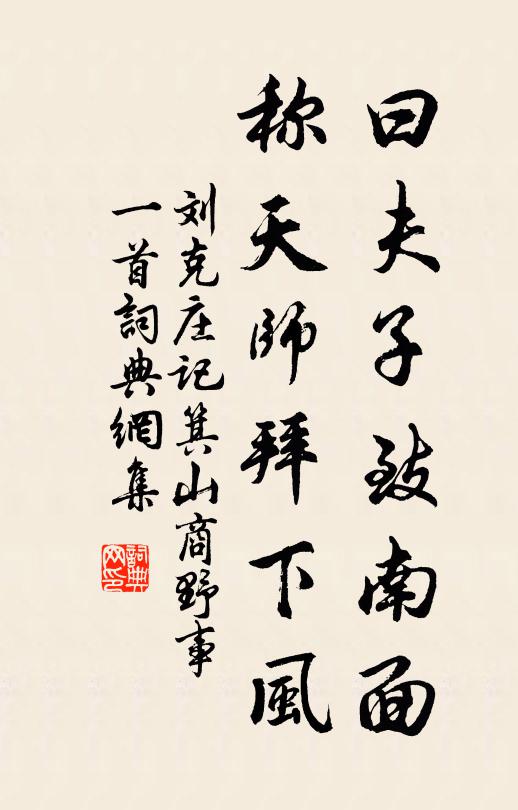 曰夫子致南面
称天師拜下風
刘克庄記箕山商野事
一首詞典網集
詞典
网印